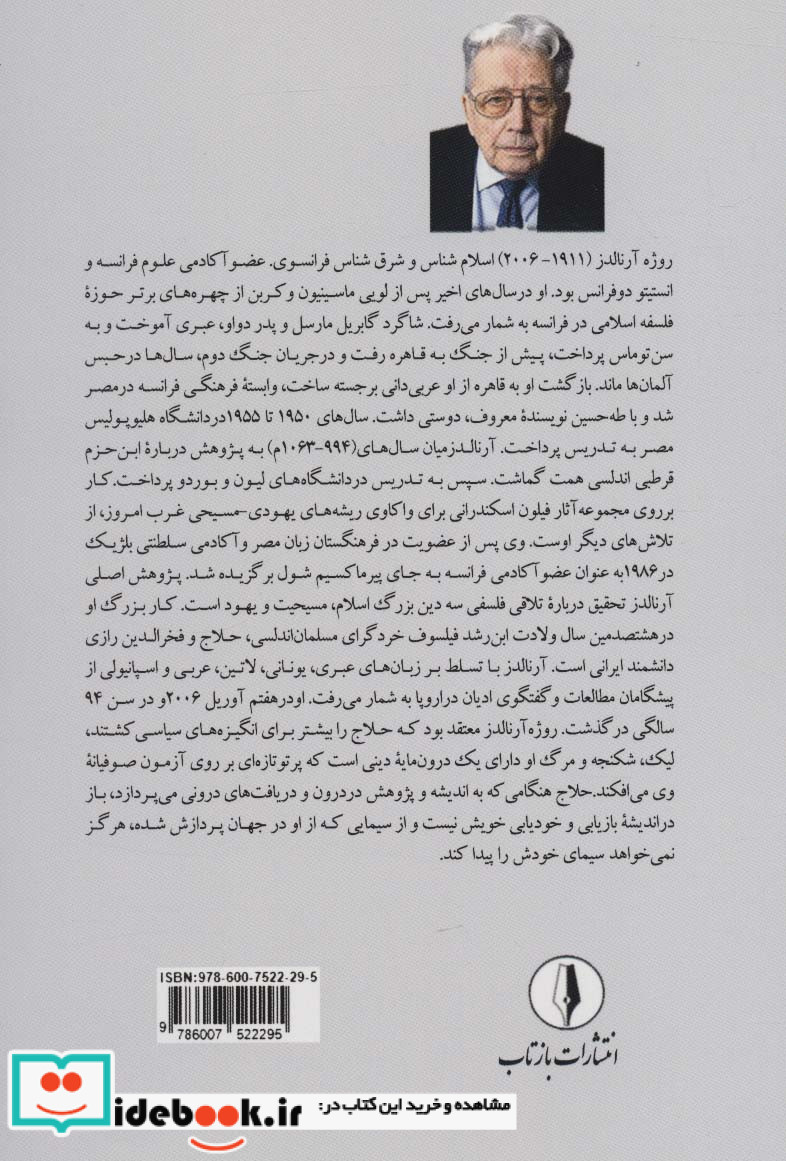 روژه آرنالدز (۱۹۱۱-۲۰۰۶) اسلام شناس و شرق شناس فرانسوی. عضو آکادمی علوم فرانسه و
انستیتو دوفرانس بود. او درسال‌های اخیر پس از لویی ماسینیون و کربن از چهره‌های برتر حوزهٔ
فلسفه اسلامی در فرانسه به شمار می‌رفت. شاگرد گابریل مارسل و پدر دواو، عبری آموخت و به
سن توماس پرداخت، پیش از جنگ به قاهره رفت و درجریان جنگ دوم، سال‌ها درحبس
آلمان‌ها ماند. بازگشت او به قاهره از او عربی‌دانی برجسته ساخت، وابستهٔ فرهنگی فرانسه درمصر
شد و با طه‌حسین نویسندهٔ معروف، دوستی داشت. سال‌های ۱۹۵۰ تا ۱۹۵۵دردانشگاه هلیوپولیس
مصر به تدریس پرداخت. آرنالدزمیان سال‌های(۹۹۴-۱۰۶۳م) به پژوهش دربارهٔ ابن‌حزم
قرطبی اندلسی همت گماشت. سپس به تدریس دردانشگاه‌های لیون و بوردو پرداخت.کار
برروی مجموعه‌آثار فیلون اسکندرانی برای واکاوی ریشه‌های یهودی-مسیحی غرب امروز، از
تلاش‌های دیگر اوست. وی پس از عضویت در فرهنگستان زبان مصر و آکادمی سلطنتی بلژیک
در۱۹۸۶به عنوان عضو آکادمی فرانسه به جای پیرماکسیم شول برگزیده شد. پژوهش اصلی
آرنالدز تحقیق دربارهٔ تلاقی فلسفی سه دین بزرگ اسلام، مسیحیت و یهود است. کار بزرگ او
درهشتصدمین سال ولادت ابن‌رشد فیلسوف خردگرای مسلمان‌اندلسی، حلاج و فخرالدین رازی
دانشمند ایرانی است. آرنالدز با تسلط بر زبان‌های عبری، یونانی، لاتین، عربی و اسپانیولی از
پیشگامان مطالعات و گفتگوی ادیان دراروپا به شمار می‌رفت. اودرهفتم آوریل ۲۰۰۶و در سن ۹۴
سالگی درگذشت. روژه آرنالدز معتقد بود که حلاج را بیشتر برای انگیزه‌های سیاسی کشتند،
لیک، شکنجه و مرگ او دارای یک درون‌مایهٔ دینی است که پرتوتازه‌ای بر روی آزمون صوفیانهٔ
وی می‌افکند.حلاج هنگامی که به اندیشه و پژوهش دردرون و دریافت‌های درونی می‌پردازد، باز
دراندیشهٔ بازیابی و خودیابی خویش نیست و از سیمایی که از او در جهان پردازش شده، هرگز
نمی‌خواهد سیمای خودش را پیدا کند.
ISBN:978-600-7522-29-5
9 786007 522295
انتشارات بازتاب
مشاهده و خرید این کتاب در:
idebook.ir